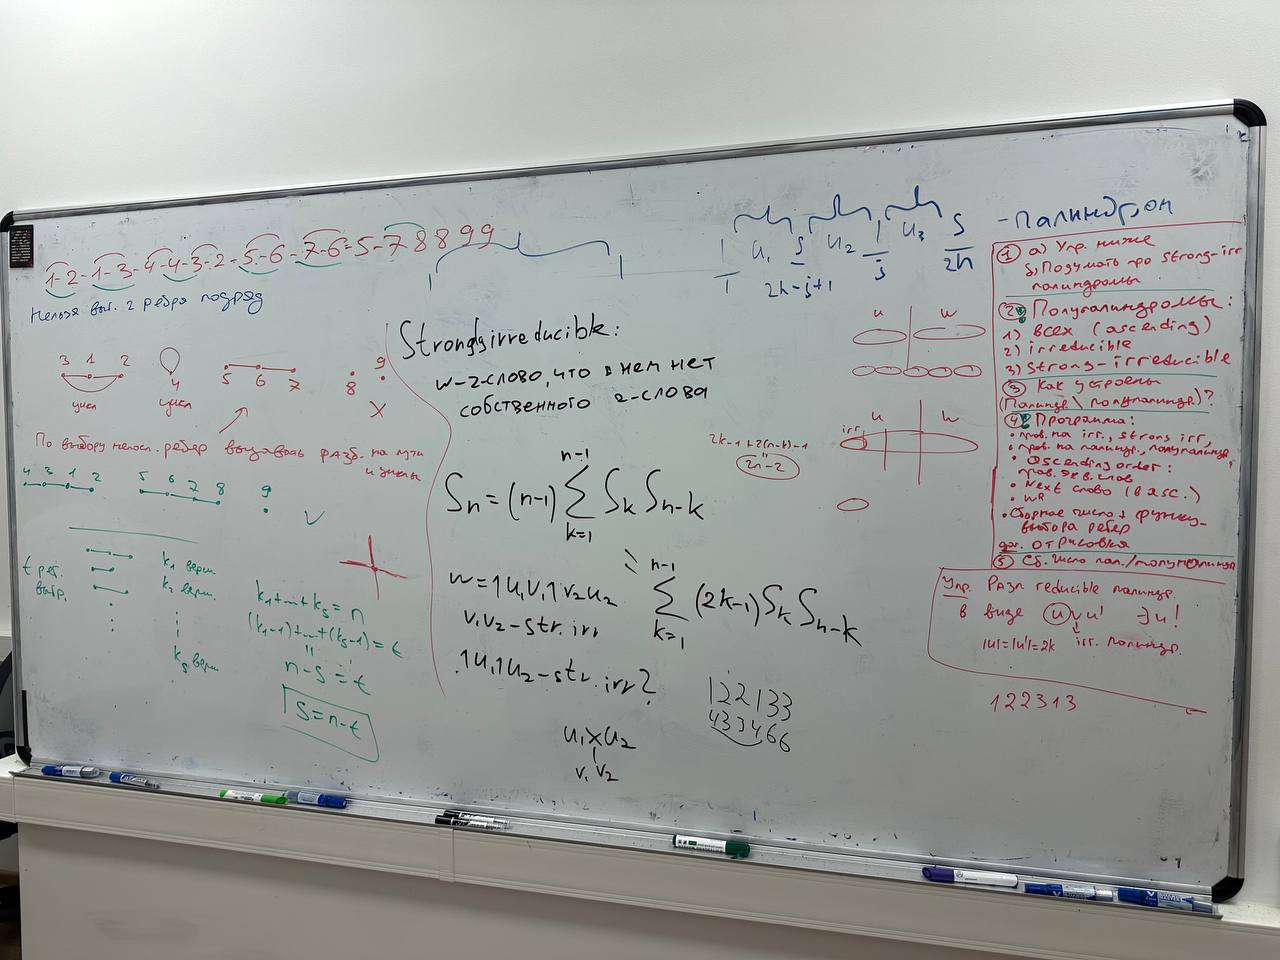 1-2-1-3-4-4-3-2-5-6-7-6-5-7 8 8 9 9
Нельзя выб. 2 ребра подряд
3 1 2
цикл
4
цикл
5 6 7
8
9
X
По выбору непосл. ребер
разб. на пути
и циклы
4 3 1 2
5 6 7 8
9
V
t реб.
выбр.
k₁ верш.
k₂ верш.
kₛ верш.
k₁+...+kₛ=n
(k₁-1)+...+(kₛ-1)=t
n-s=t
S=n-t
Strongly irreducible:
w-2-слово, что в нем нет
собственного 2-слова
Sₙ=(n-1) Σ SₖSₙ₋ₖ
n-1
k=1
2k-1+2(n-k)-1
2n-2
w=1u₁v₁1v₂u₂
v₁v₂-str.irr
1u₁1u₂-str.irr?
n-1
Σ (2k-1)SₖSₙ₋ₖ
k=1
u₁xu₂
v₁v₂
122133
433466
1 u₁ s u₂ 1 u₃ s
1 2n-j+1 j 2n
-палиндром
u w
u w
irr
① а) Упр. ниже
б) Подумать про strong-irr
палиндромы
② Полупалиндромы:
1) всех (ascending)
2) irreducible
3) strong-irreducible
③ Как устроены
(Палиндр \ полупалиндр)?
④ Программа:
• пров. на irr., strong irr,
• пров. на палиндр., полупалиндр.
• ascending order:
пров. экв. слов
• Next слово (в asc.)
• wR
• Сборное число + функц.
выбора ребер
доп. отрисовка
⑤ Сб. число пал./полупалиндр
Упр. Разл reducible палиндр.
в виде uvu' ∃u!
|u|=|u'|=2k irr. палиндр.
122313